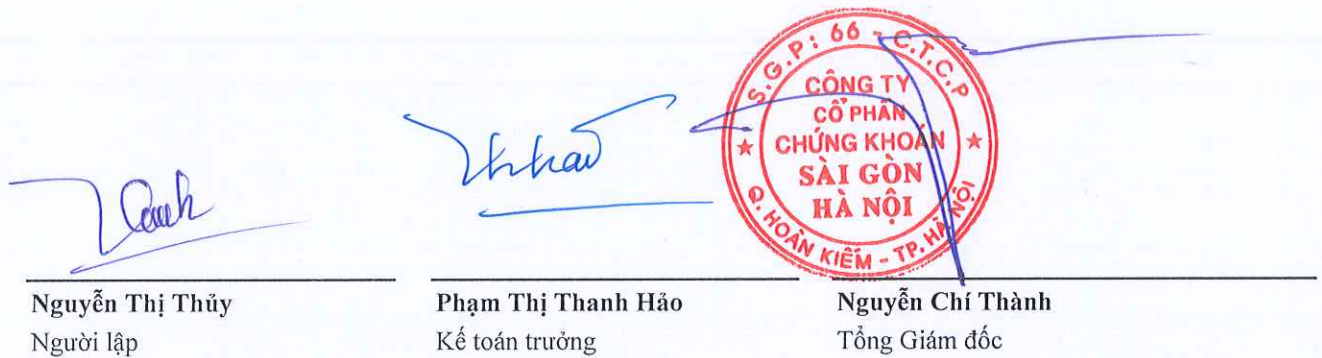 S.G.P: 66 - C.T.C.P
CÔNG TY
CỔ PHẦN
CHỨNG KHOÁN
SÀI GÒN
HÀ NỘI
Q. HOÀN KIẾM - TP. HÀ NỘI
Nguyễn Thị Thủy
Người lập
Phạm Thị Thanh Hảo
Kế toán trưởng
Nguyễn Chí Thành
Tổng Giám đốc